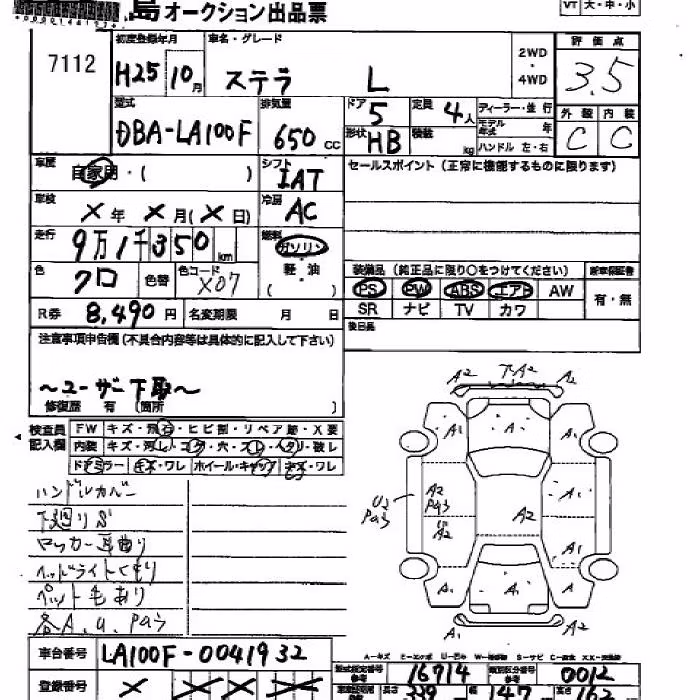 島オークション出品票
VT 大・中・小
7112
初度登録年月 H25 10月
車名・グレード ステラ L
2WD・4WD
評価点 3.5
型式 DBA-LA100F
排気量 650 CC
ドア 5
定員 4人
ディーラー・並行
形状 HB
積装 kg
モデル年式 年
ハンドル 左・右
外装 C 内装 C
車歴 自家用・( )
シフト IAT
セールスポイント (正常に機能するものに限ります)
車検 X年 X月(X日)
冷房 AC
走行 9万1千350 km
燃料 ガソリン 軽油 ( )
色 クロ 色替 色コード X07
装備品 (純正品に限り○をつけてください)
新車保証書
PS PW ABS エアB AW
有・無
SR ナビ TV カワ
R券 8,490円 名変期限 月 日
後日品
注意事項申告欄(不具合内容等は具体的に記入して下さい)
~ユーザー下取~
修復歴 有 (箇所 )
検査員記入欄
FW キズ・飛石・ヒビ割・リペア跡・X要
内装 キズ・汚レ・コゲ・穴・スレ・ヘタリ・破レ
ドアミラー キズ・ワレ ホイール・キャップ キズ・ワレ
ハンドルカバー
下廻りS
ロッカー耳曲り
ヘッドライトくもり
ペット毛あり
各A,U,Pあり
A2 下A2 A2
A1 A A1
U2 A2 A2 A1
A1
A A1 A
A2 A1
車台番号 LA100F-0041932
型式指定番号 参考 16914
類別区分番号 参考 0012
登録番号 X X X X
長さ 339 幅 147 高さ 162